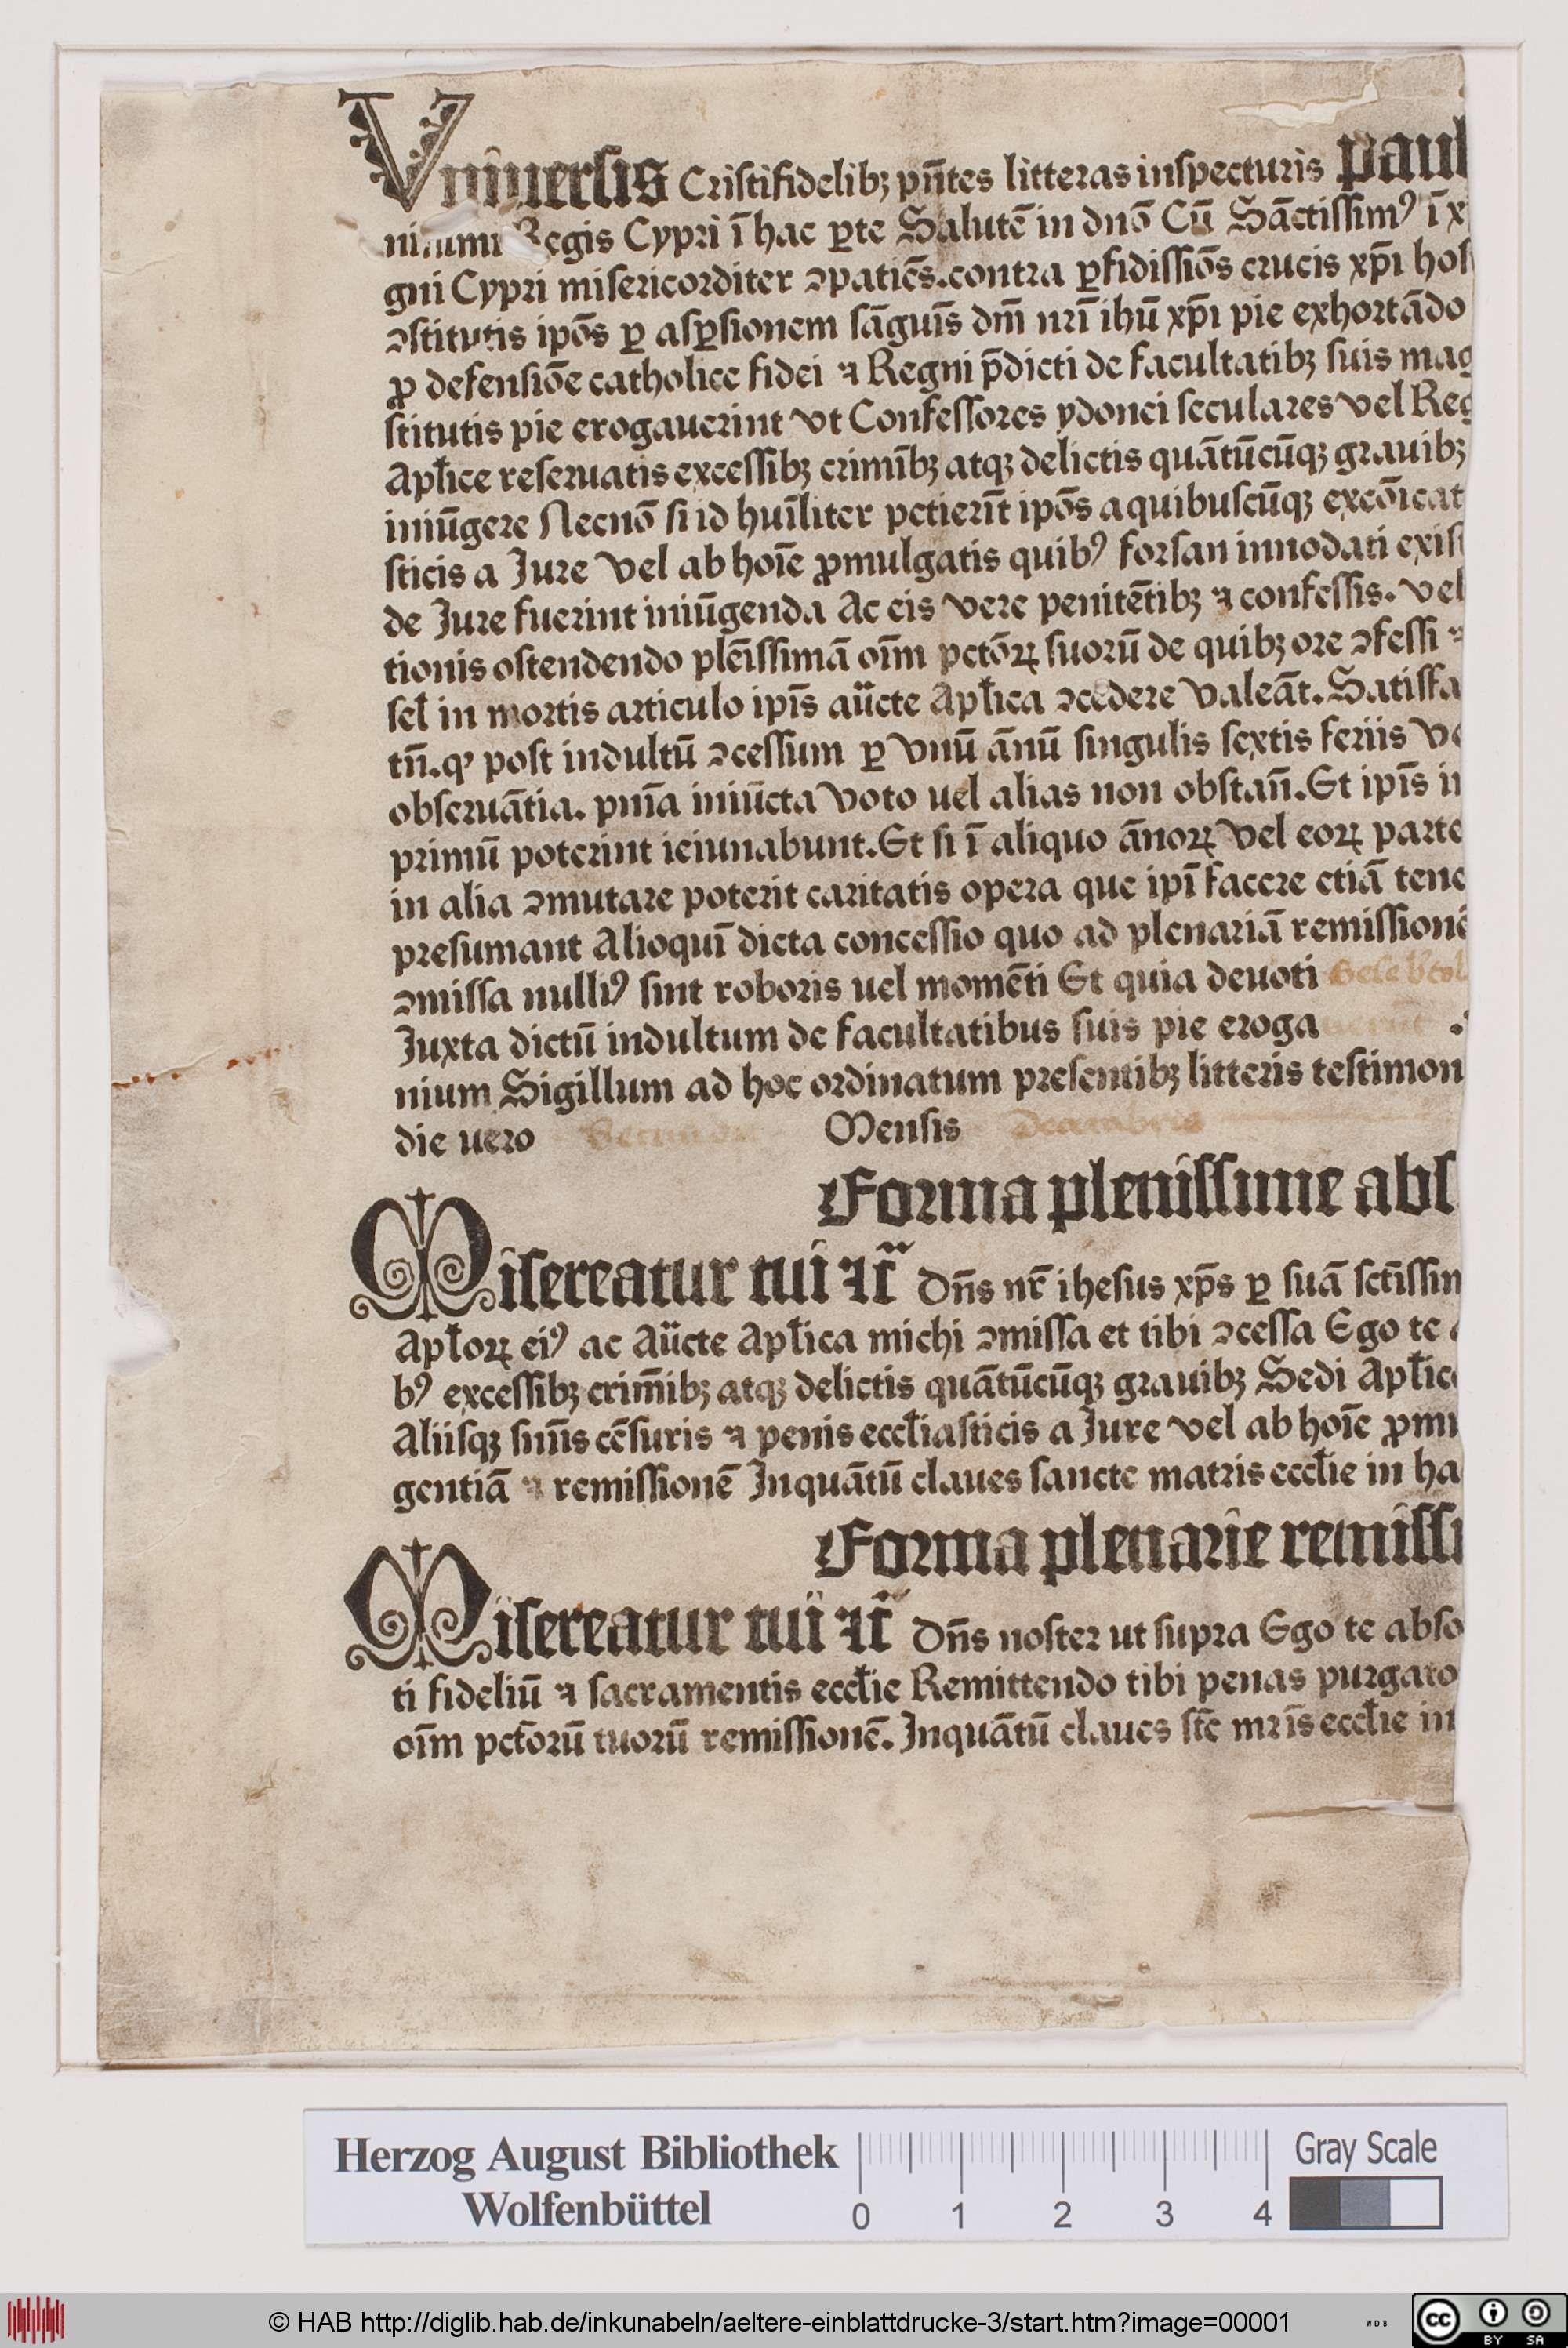 Vniuersis Cristifidelibꝫ pn̄tes litteras inspecturis Paul
Regis Cypri ī hac ꝑte Salutē in dnō Cū Sāctissimꝰ ī x
gni Cypri misericorditer ꝯpatiēs.contra ꝑfidissiōs crucis xp̄i hos
ꝯstitutis ipōs ꝑ aspꝑsionem sāguīs dnī nrī ihū xp̄i pie exhortādo
ꝓ defensiōe catholice fidei ⁊ Regni p̄dicti de facultatibꝫ suis mag
stitutis pie erogauerint vt Confessores ydonei seculares vel Reg
Apl̄ice reseruatis excessibꝫ crimībꝫ atqꝫ delictis quātūcūqꝫ grauibꝫ
iniūgere Necnō si id huīliter petierīt ipōs a quibuscūqꝫ excōicat
sticis a Jure vel ab hoīe ꝓmulgatis quibꝰ forsan innodati exis
de Jure fuerint iniūgenda Ac eis vere penitētibꝫ ⁊ confessis. vel
tionis ostendendo plēissimā oīm pctōꝝ suorū de quibꝫ ore ꝯfessi ⁊
sel̄ in mortis articulo ipīs aūcte Apl̄ica ꝯcedere valeāt. Satisfa
tn̄.qꝰ post indultū ꝯcessum ꝑ vnū ānū singulis sextis feriis v
obseruātia. pnīa iniūcta voto uel alias non obstan̄. Et ipīs i
primū poterint ieiunabunt. Et si ī aliquo ānoꝝ vel eoꝝ parte
in alia ꝯmutare poterit caritatis opera que ipī facere etiā tene
presumant Alioquī dicta concessio quo ad plenariā remissionē
ꝯmissa nulliꝰ sint roboris uel momēti Et quia deuoti
Juxta dictū indultum de facultatibus suis pie eroga uerūt
nium Sigillum ad hoc ordinatum presentibꝫ litteris testimon
die uero Mensis decembris
Forma plenissime abs
Misereatur tui ⁊c̄ Dn̄s nr̄ ihesus xp̄s ꝑ suā sctīssim
Apl̄oꝝ eiꝰ ac Aūcte Apl̄ica michi ꝯmissa et tibi ꝯcessa Ego te
bꝰ excessibꝫ crimībꝫ atqꝫ delictis quātūcūqꝫ grauibꝫ Sedi Apl̄ic
Aliisqꝫ snīīs cēsuris ⁊ penis eccl̄iasticis a Jure vel ab hoīe ꝓm
gentiā ⁊ remissionē Inquātū claues sancte matris eccl̄ie in ha
Forma plenarie remissi
Misereatur tui ⁊c̄ Dn̄s noster ut supra Ego te abso
ti fideliū ⁊ sacramentis eccl̄ie Remittendo tibi penas purgato
oīm pct̄orū tuorū remissionē. Inquātū claues st̄e mrīs eccl̄ie in
Herzog August Bibliothek
Wolfenbüttel
0 1 2 3 4
Gray Scale
© HAB http://diglib.hab.de/inkunabeln/aeltere-einblattdrucke-3/start.htm?image=00001
WDB
cc BY SA